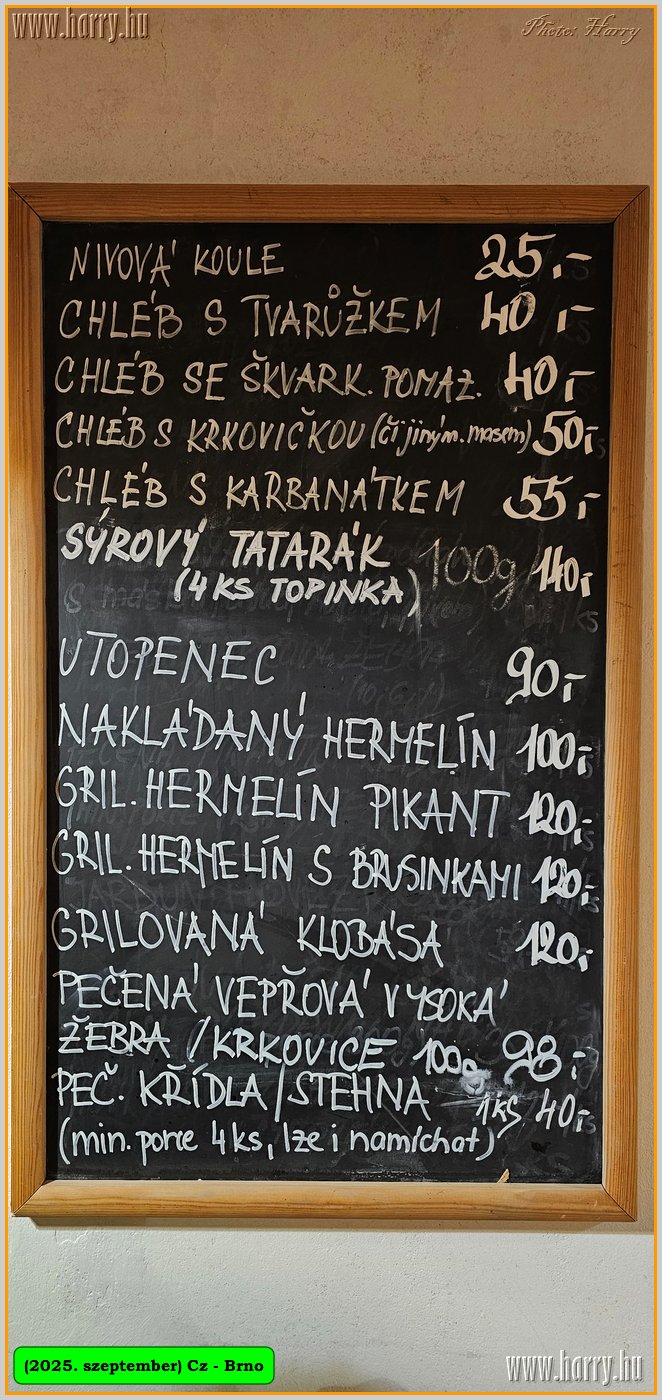 www.harry.hu
Photo: Harry
NIVOVÁ KOULE 25,-
CHLÉB S TVARŮŽKEM 40,-
CHLÉB SE ŠKVARK. POMAZ. 40,-
CHLÉB S KRKOVIČKOU (či jiným. masem) 50,-
CHLÉB S KARBANÁTKEM 55,-
SÝROVÝ TATARÁK 100g 140,-
(4 KS TOPINKA)
UTOPENEC 90,-
NAKLÁDANÝ HERMELÍN 100,-
GRIL. HERMELÍN PIKANT 120,-
GRIL. HERMELÍN S BRUSINKAMI 120,-
GRILOVANÁ KLOBÁSA 120,-
PEČENÁ VEPŘOVÁ VYSOKÁ
ŽEBRA / KRKOVICE 100g 98,-
PEČ. KŘÍDLA/STEHNA 1 KS 40,-
(min. porce 4 ks, lze i namíchat)
(2025. szeptember) Cz - Brno
www.harry.hu